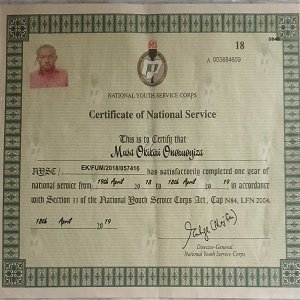 18
A 003884609
NATIONAL YOUTH SERVICE CORPS
Certificate of National Service
This is to Certify that
Musa Okikiri Onomoyiza
NYSC/ EK/FUM/2018/057416 has satisfactorily completed one year of
national service from 19th April 2018 to 18th April 2019 in accordance
with Section 11 of the National Youth Service Corps Act, Cap N84, LFN 2004.
18th April 2019
Director-General
National Youth Service Corps